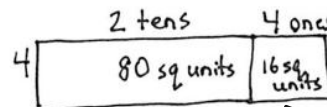 2 tens 4 one
4 80 sq units 16 sq
units